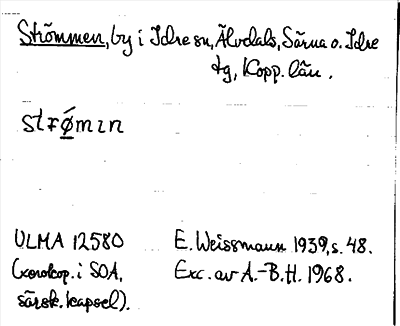 Strömmen, by i Idre sn, Älvdals, Särna o. Idre
tg, Kopp. län.
strǿ̲mɪn
ULMA 12580 E. Weissmann 1939, s. 48.
(xerokop. i SOA, Exc. av A.-B.H. 1968.
särsk. kapsel).